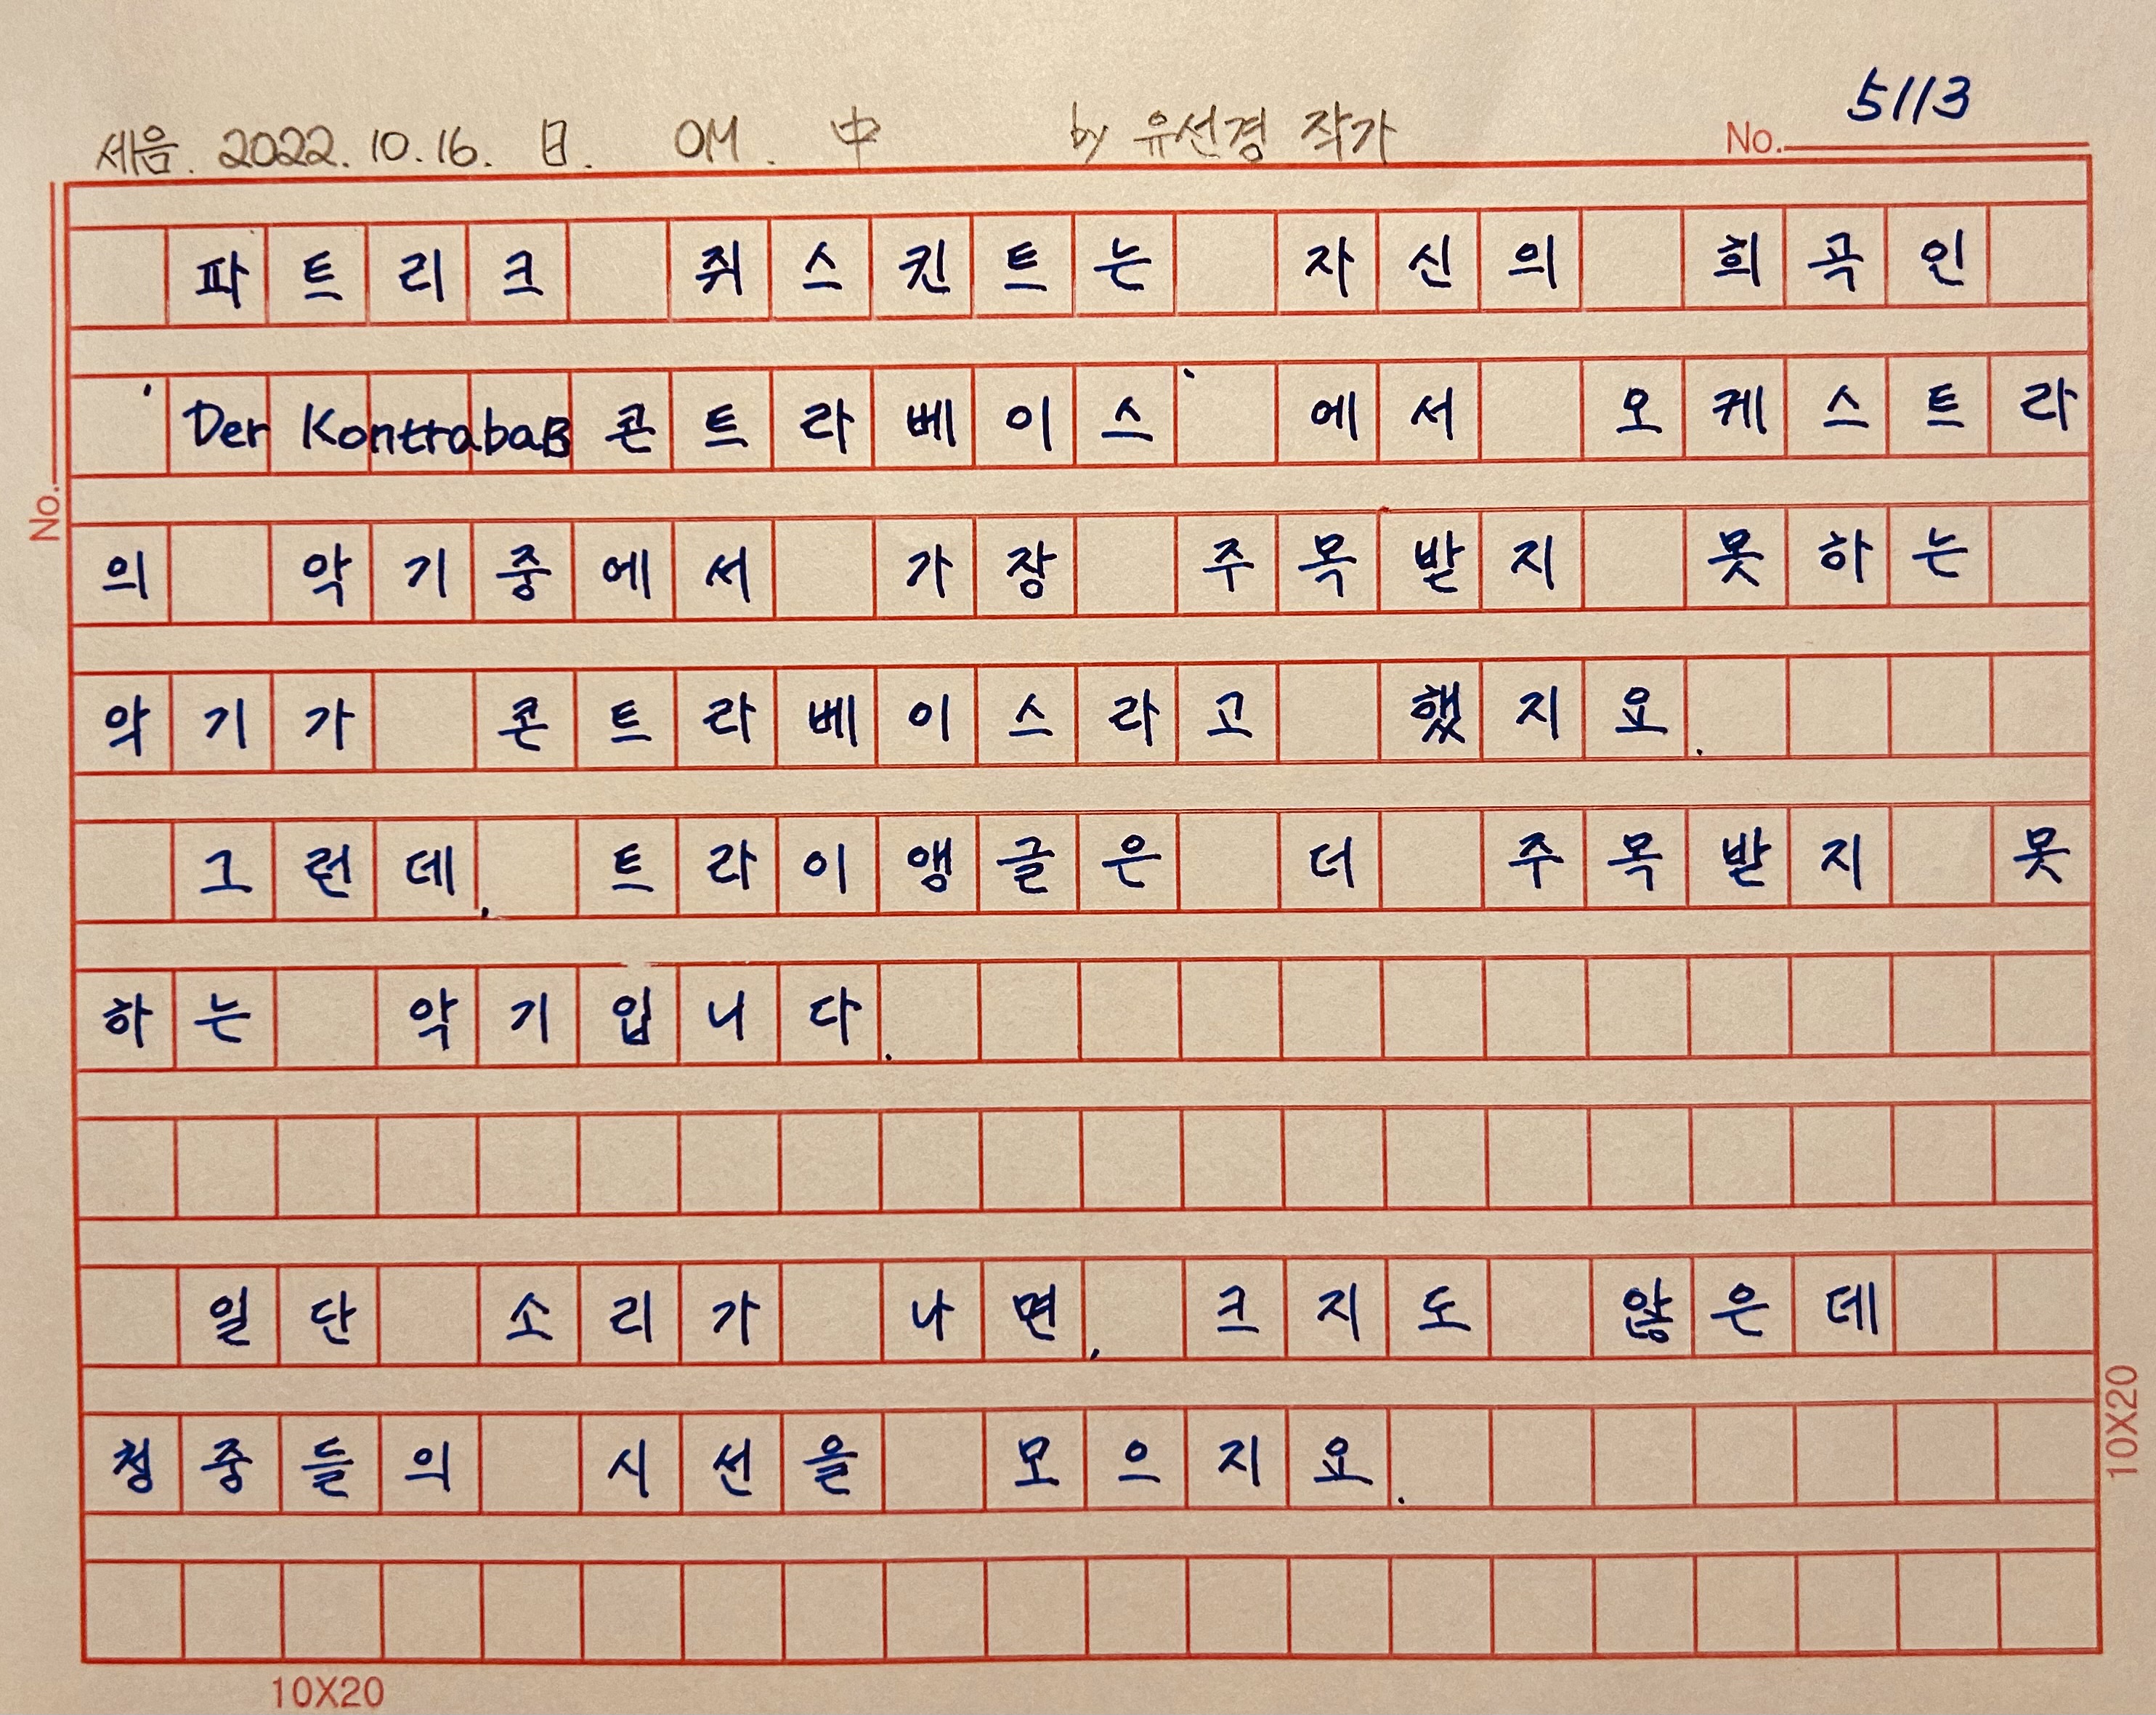 세음. 2022. 10. 16. 日. OM. 中 by 유선경 작가
No. 5113
파트리크 쥐스킨트는 자신의 희곡인
'Der Kontrabaß 콘트라베이스' 에서 오케스트라
의 악기중에서 가장 주목받지 못하는
악기가 콘트라베이스라고 했지요.
그런데, 트라이앵글은 더 주목받지 못
하는 악기입니다.
일단 소리가 나면, 크지도 않은데
청중들의 시선을 모으지요.
No.
10X20
10X20